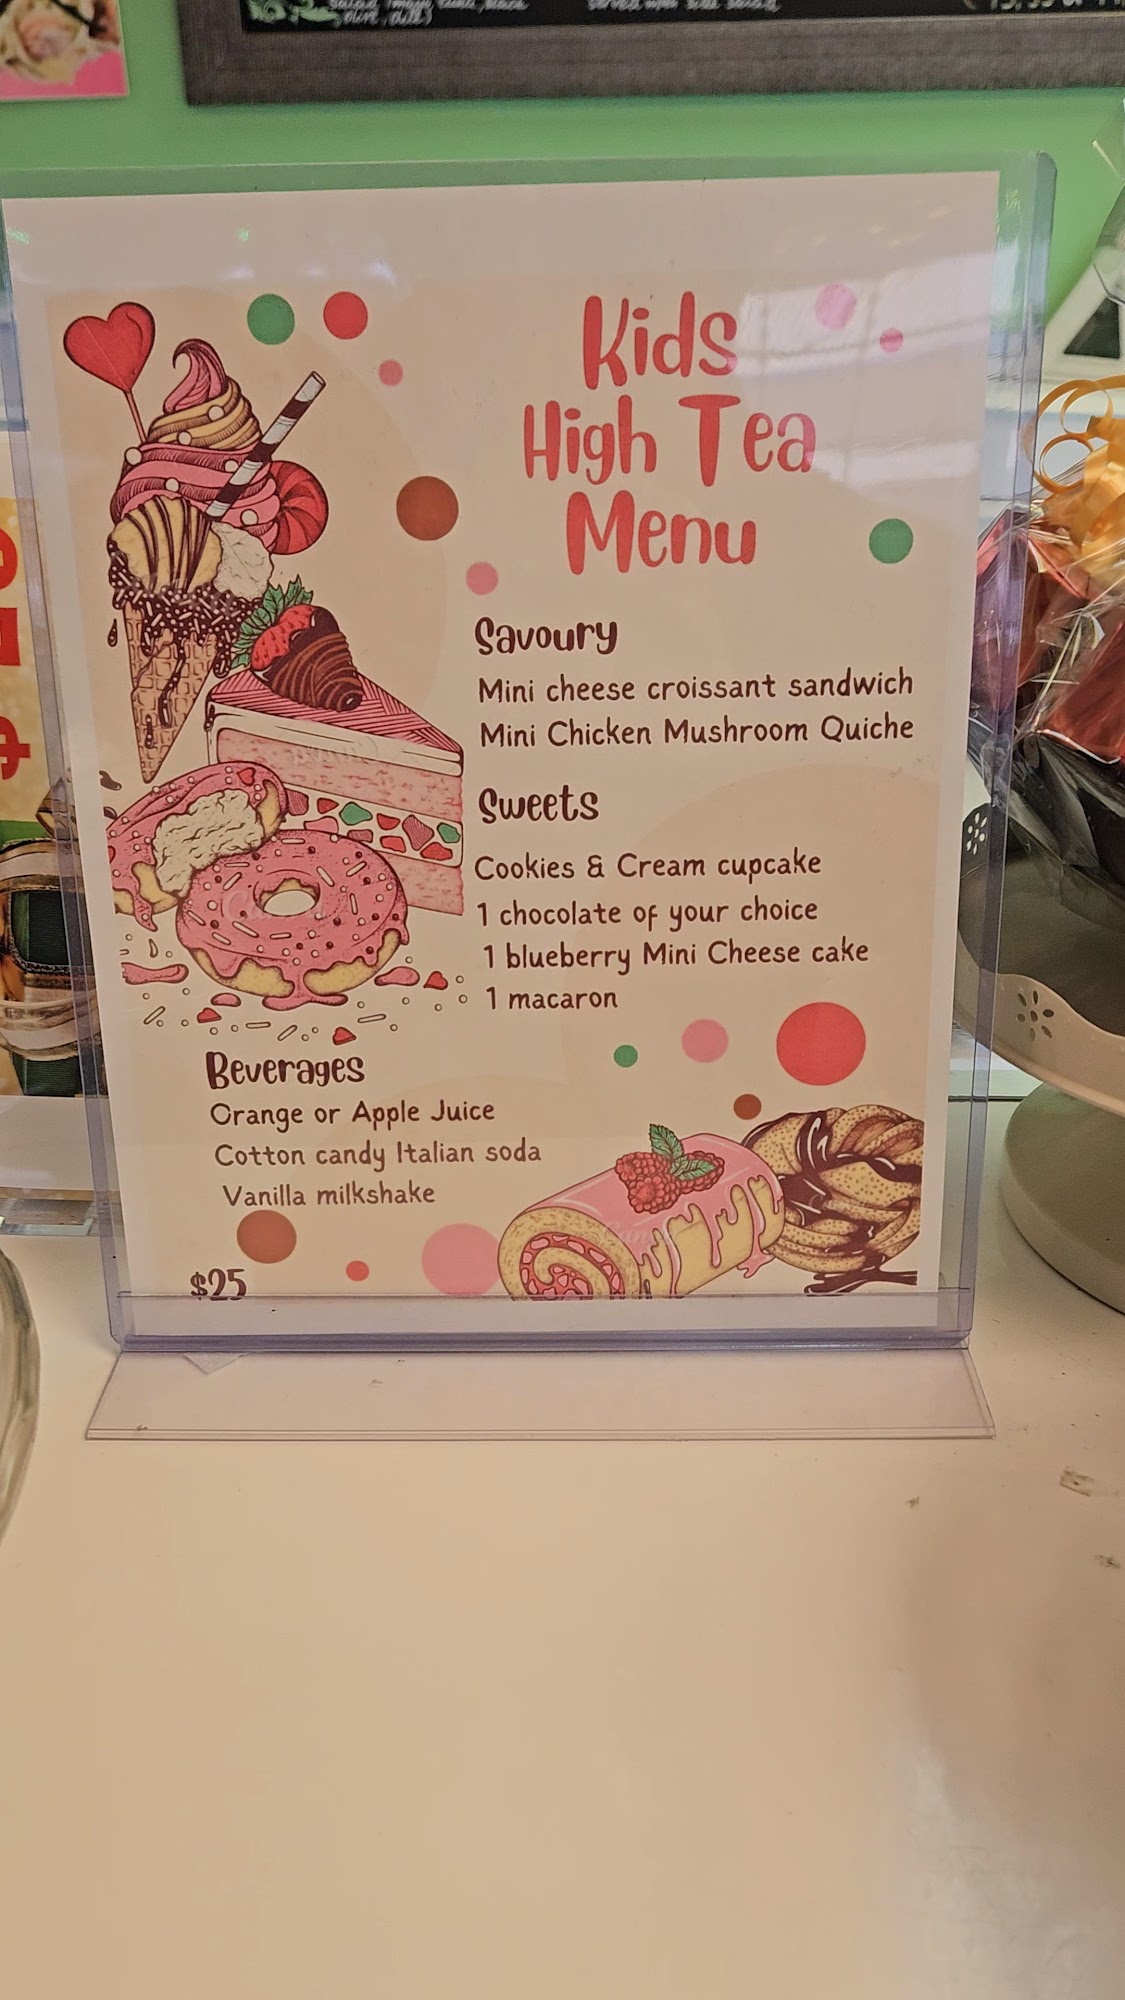 Served with side salad
Kids
High Tea
Menu
Savoury
Mini cheese croissant sandwich
Mini Chicken Mushroom Quiche
Sweets
Cookies & Cream cupcake
1 chocolate of your choice
1 blueberry Mini Cheese cake
1 macaron
Beverages
Orange or Apple Juice
Cotton candy Italian soda
Vanilla milkshake
$25